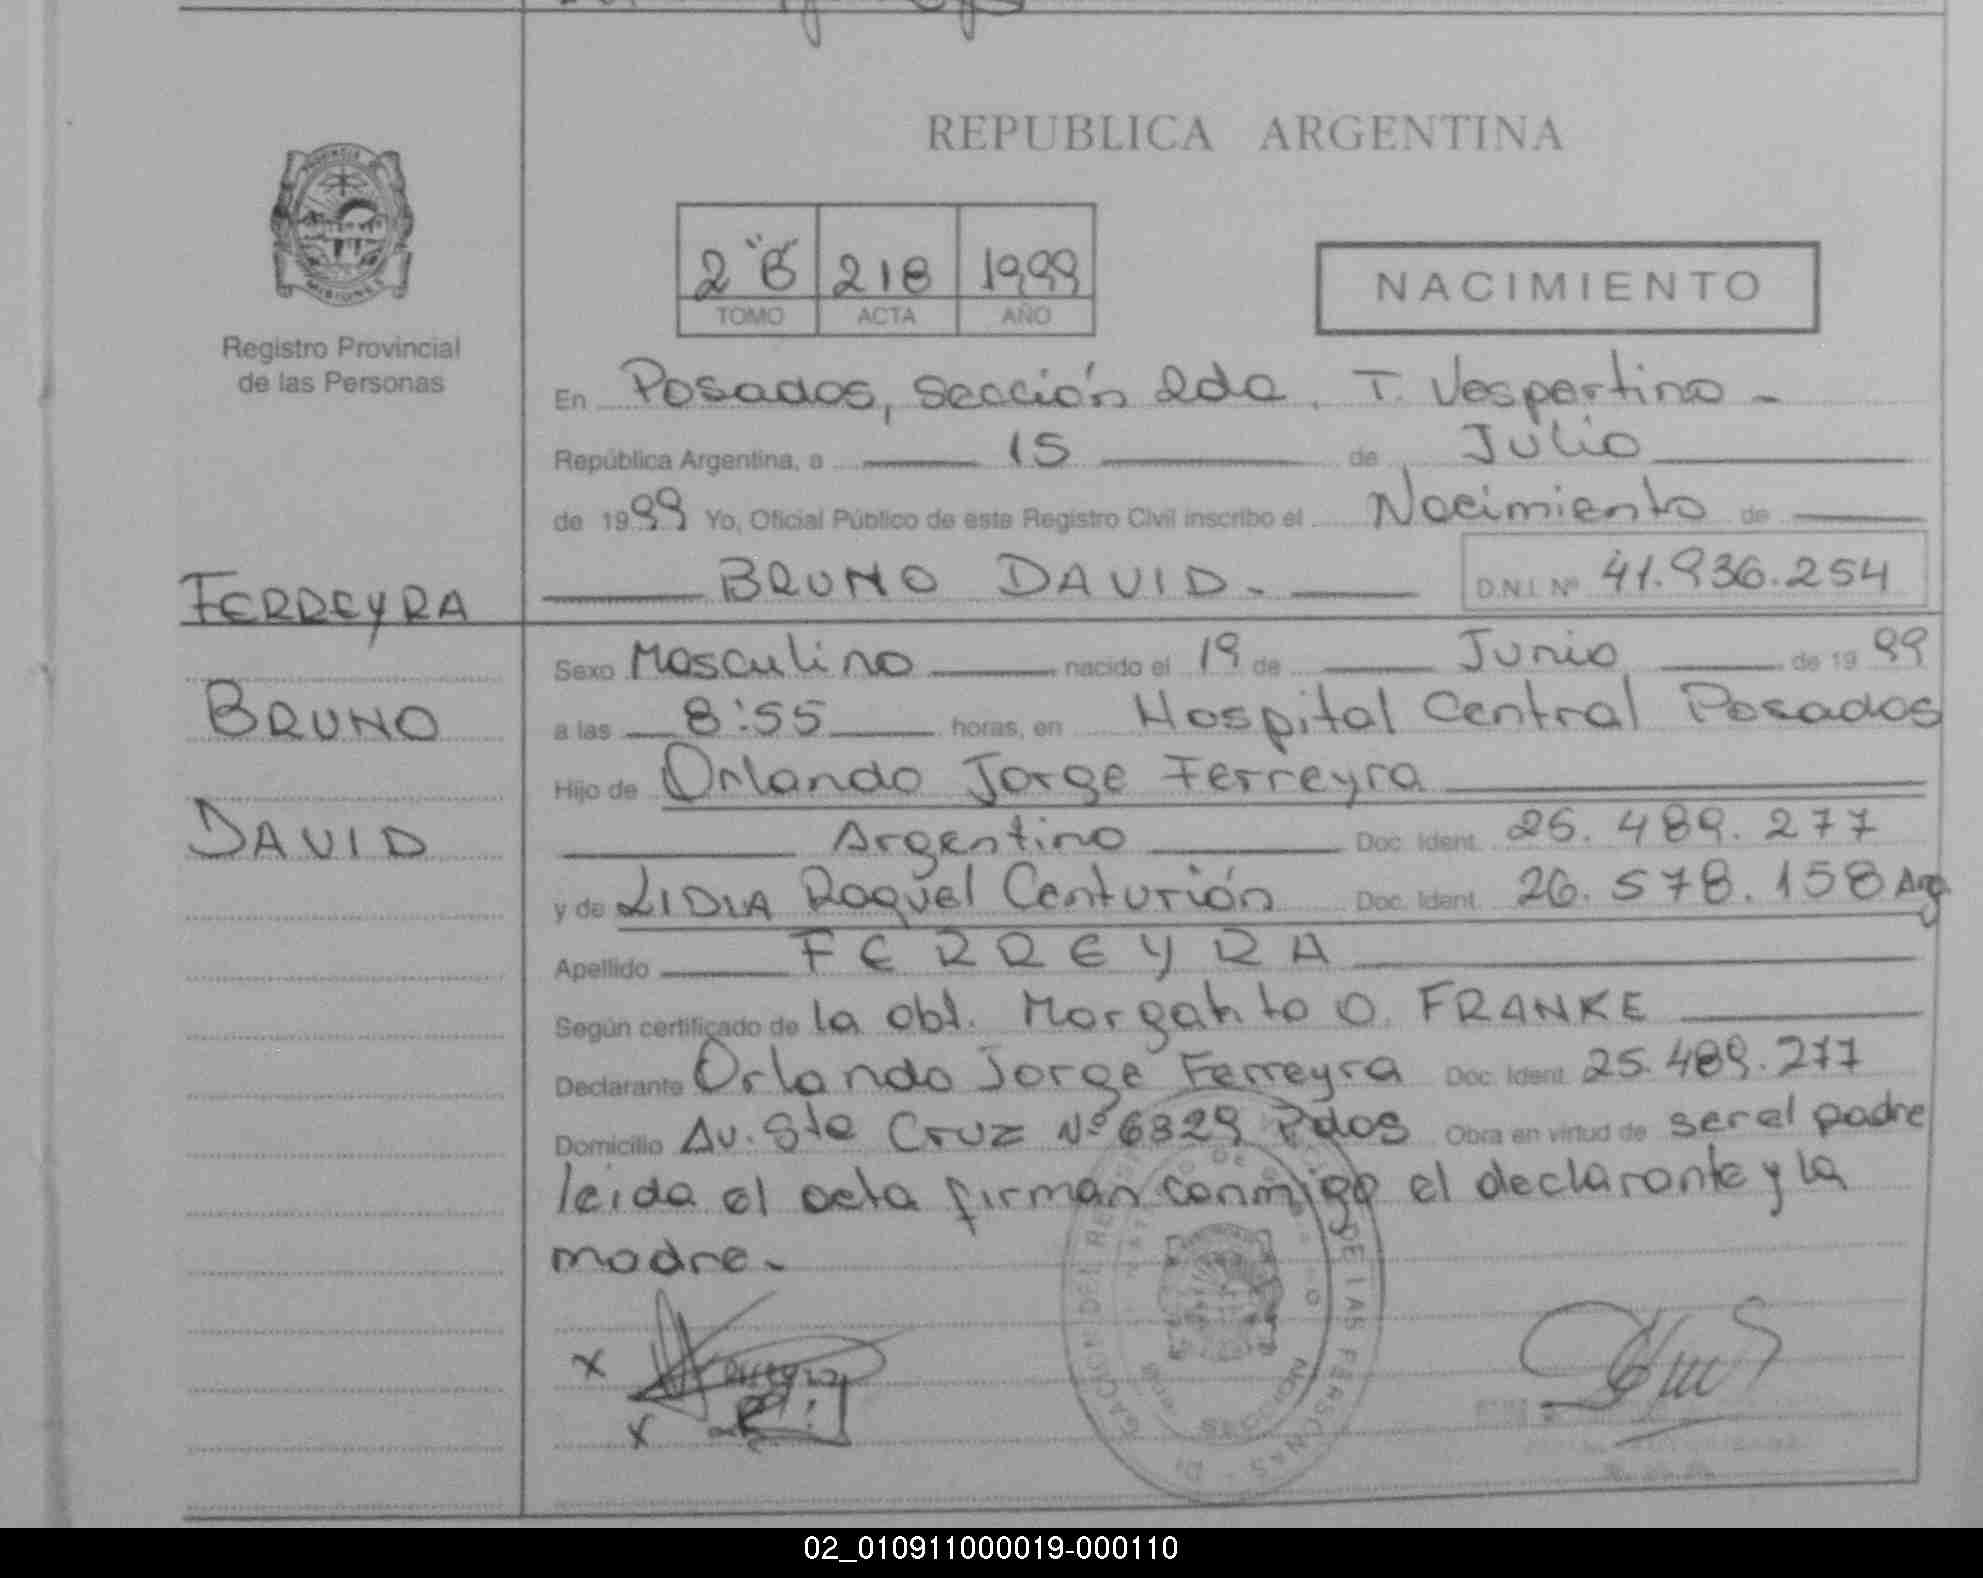 REPUBLICA ARGENTINA
PROVINCIA
MISIONES
Registro Provincial
de las Personas
2 "B" 218 1999
TOMO ACTA AÑO
NACIMIENTO
En Posadas, sección 2da. T. Vespertino -
República Argentina, a 15 de Julio
de 1999 Yo, Oficial Público de este Registro Civil inscribo el Nacimiento de
FERREYRA
BRUNO DAVID.- D.N.I. Nº 41.936.254
Sexo Masculino nacido el 19 de Junio de 1999
BRUNO
a las 8:55 horas, en Hospital Central Posadas
Hijo de Orlando Jorge Ferreyra
DAVID
Argentino Doc. Ident. 25.489.277
y de LIDIA Raquel Centurión Doc. Ident. 26.578.158 Arg.
Apellido FERREYRA
Según certificado de la obt. O. FRANKE
Declarante Orlando Jorge Ferreyra Doc. Ident. 25.489.277
Domicilio Av. Sta Cruz Nº 6329 Pdas Obra en virtud de ser el padre
leida el acta firman conmigo el declarante y la
madre.-
x
x
02_010911000019-000110